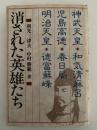 神武天皇・和気清麻呂
児島高徳・春日局
明治天皇・徳富蘇峰
消された英雄たち